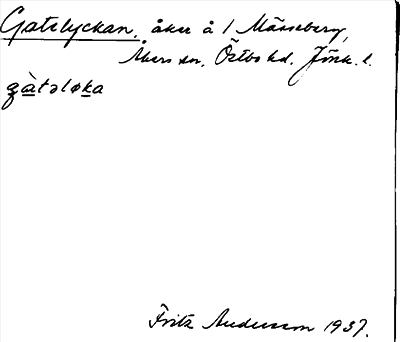 Gatelyckan, åker å 1 Mässeberg,
Åkers sn, Östbo hd, Jönk. l.
gàtəløka
Fritz Andersson 1937.